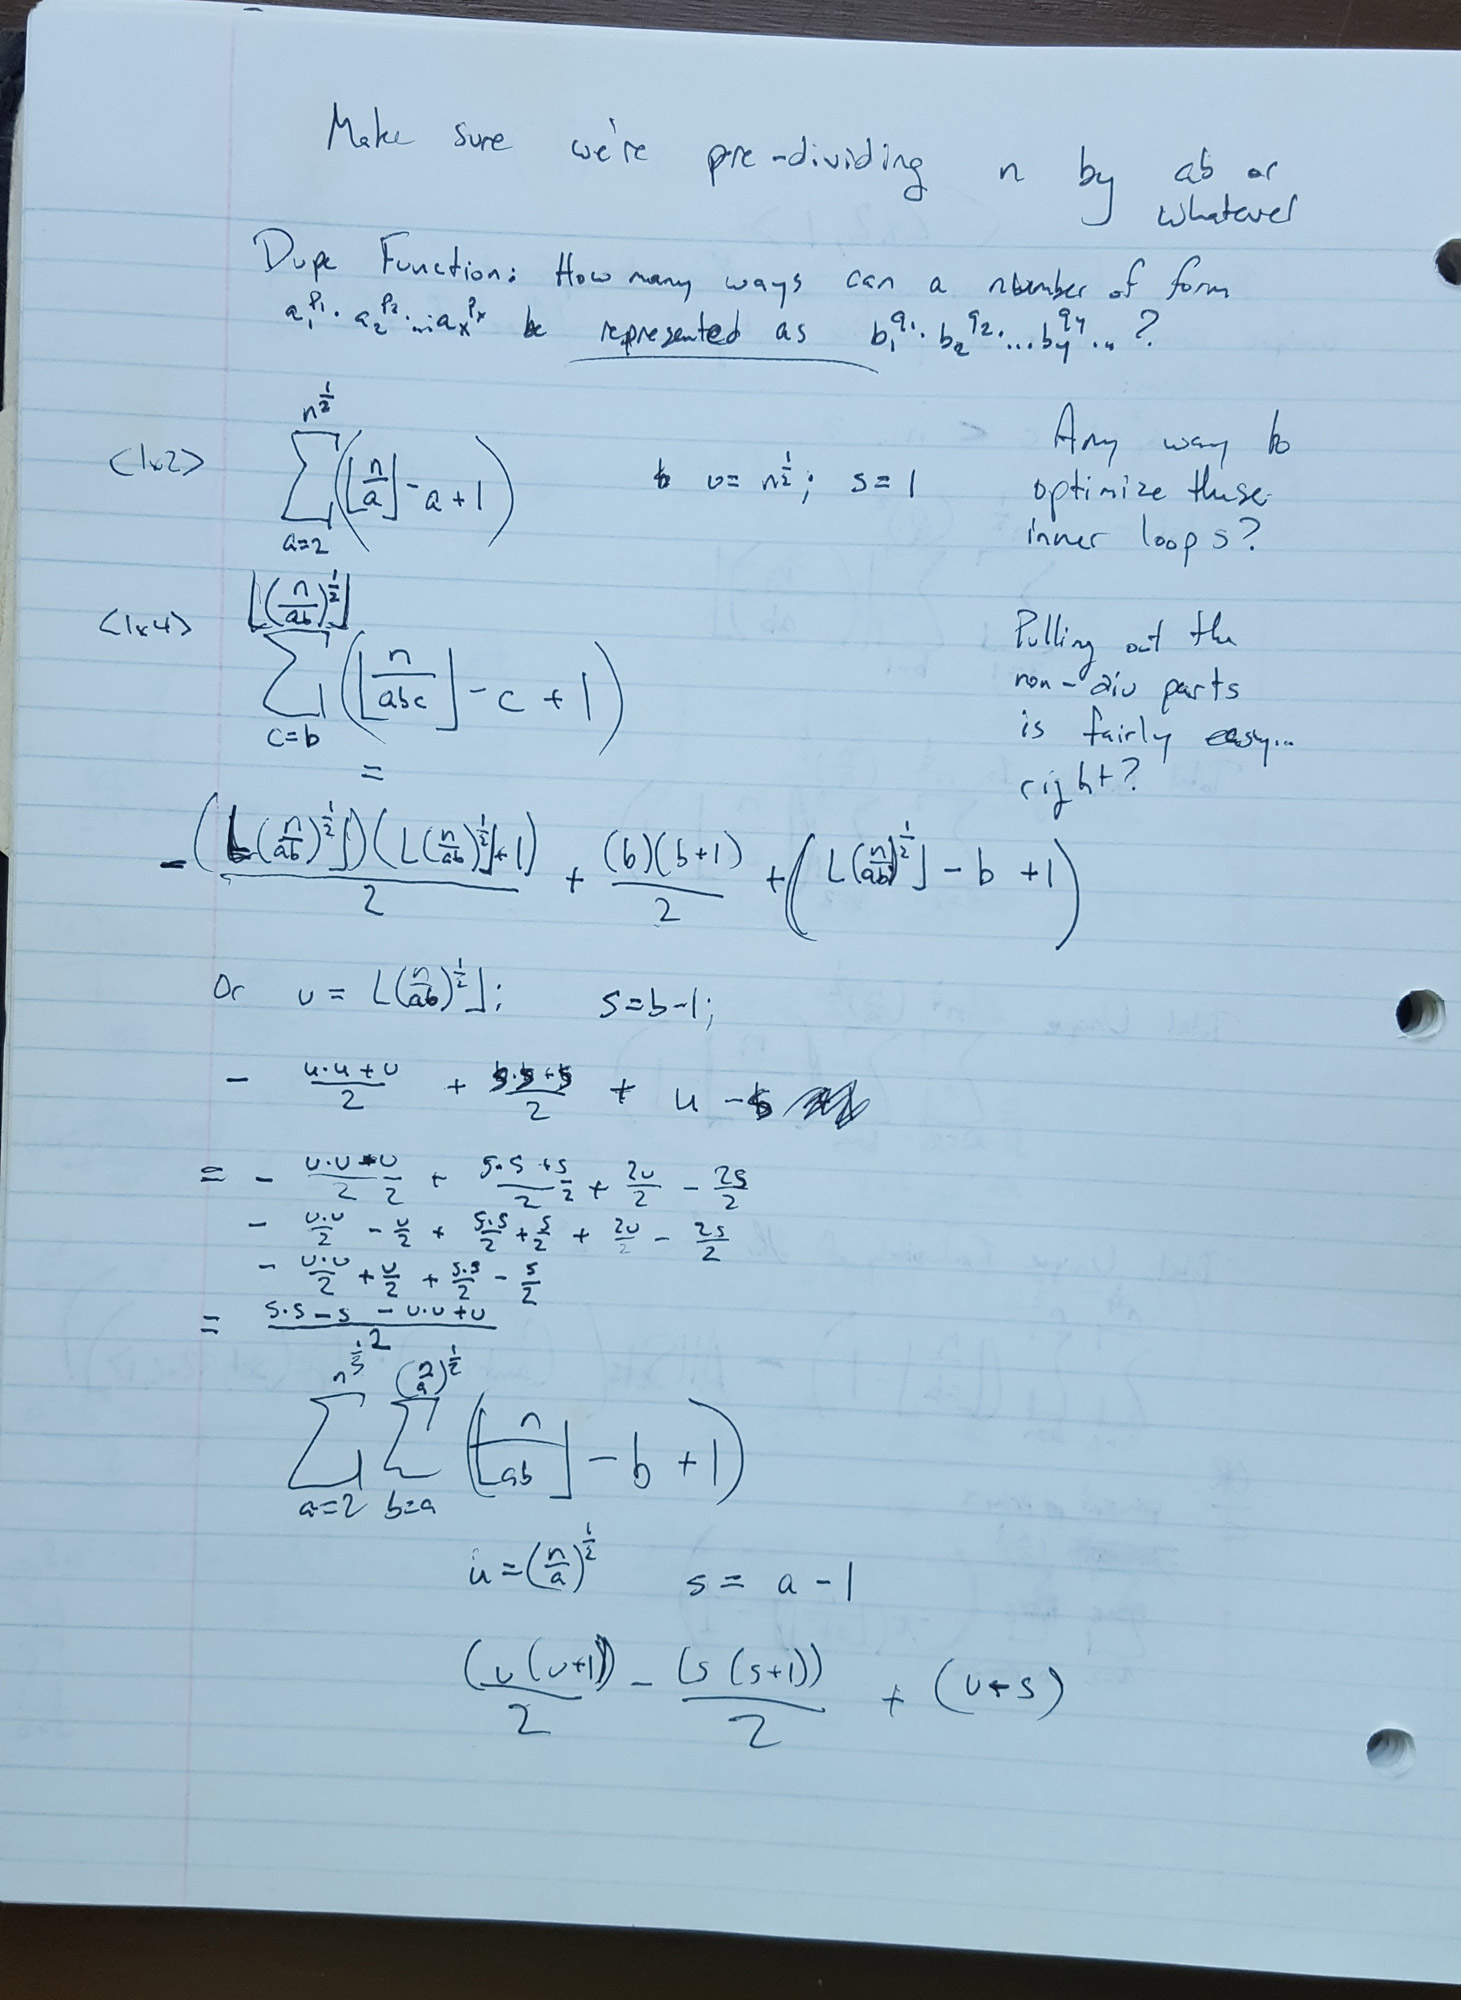 Make sure we're pre-dividing n by ab or
whatever
Dupe Function: How many ways can a number of form
a₁^p₁ · a₂^p₂ · ... aₓ^pₓ be represented as b₁^q₁ · b₂^q₂ · ... b_y^q_y ... ?
<1x2> ∑_{a=2}^{n^{1/2}} (⌊n/a⌋ - a + 1) u = n^{1/2}; s = 1
Any way to
optimize these
inner loops?
<1x4> ∑_{c=b}^{⌊(n/ab)^{1/2}⌋} (⌊n/abc⌋ - c + 1)
Pulling out the
non-div parts
is fairly easy...
right?
=
- (⌊(n/ab)^{1/2}⌋)(⌊(n/ab)^{1/2}⌋+1)/2 + (b)(b+1)/2 + (⌊(n/ab)^{1/2}⌋ - b + 1)
Or u = ⌊(n/ab)^{1/2}⌋; s = b-1;
- (u·u+u)/2 + (s·s+s)/2 + u - s
= - u·u+u/2 /2 + s·s+s/2 /2 + 2u/2 - 2s/2
- u·u/2 - u/2 + s·s/2 + s/2 + 2u/2 - 2s/2
- u·u/2 + u/2 + s·s/2 - s/2
= (s·s - s - u·u + u)/2
∑_{a=2}^{n^{1/3}} ∑_{b=a}^{(n/a)^{1/2}} (⌊n/ab⌋ - b + 1)
u = (n/a)^{1/2} s = a - 1
(u(u+1))/2 - (s(s+1))/2 + (u+s)